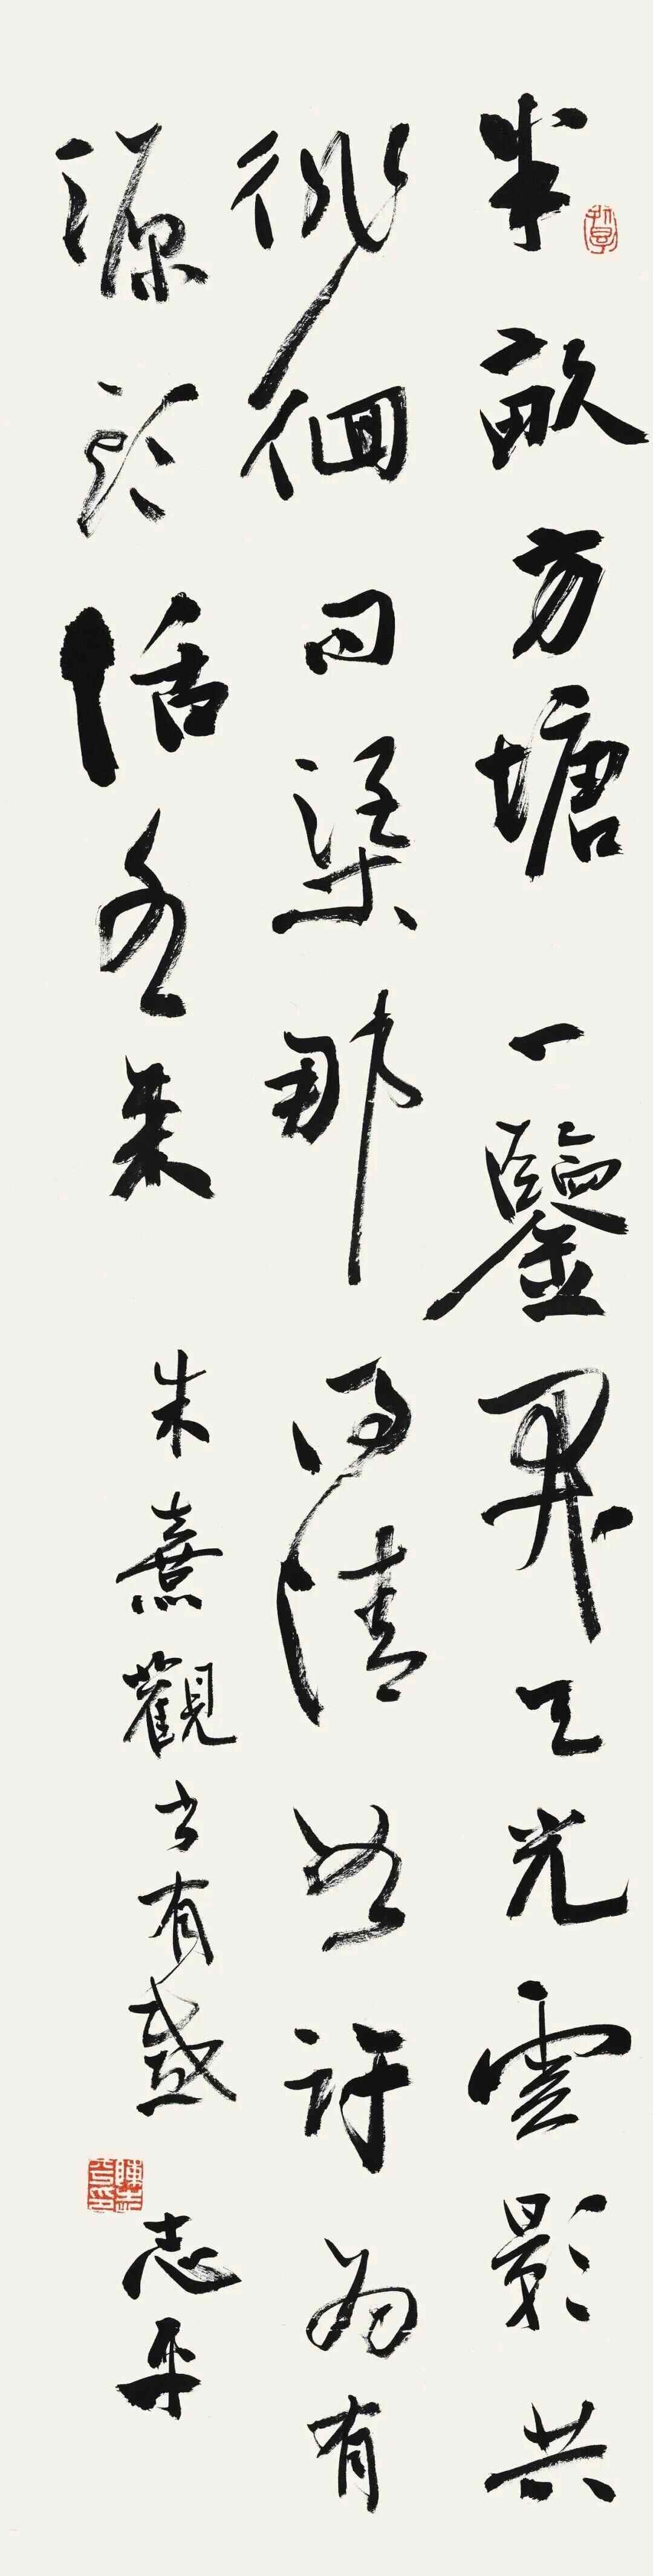 半畝方塘一鑒開天光雲影共
徘徊問渠那得清如許為有
源頭活水來
朱熹觀書有感 志平
陳志平印